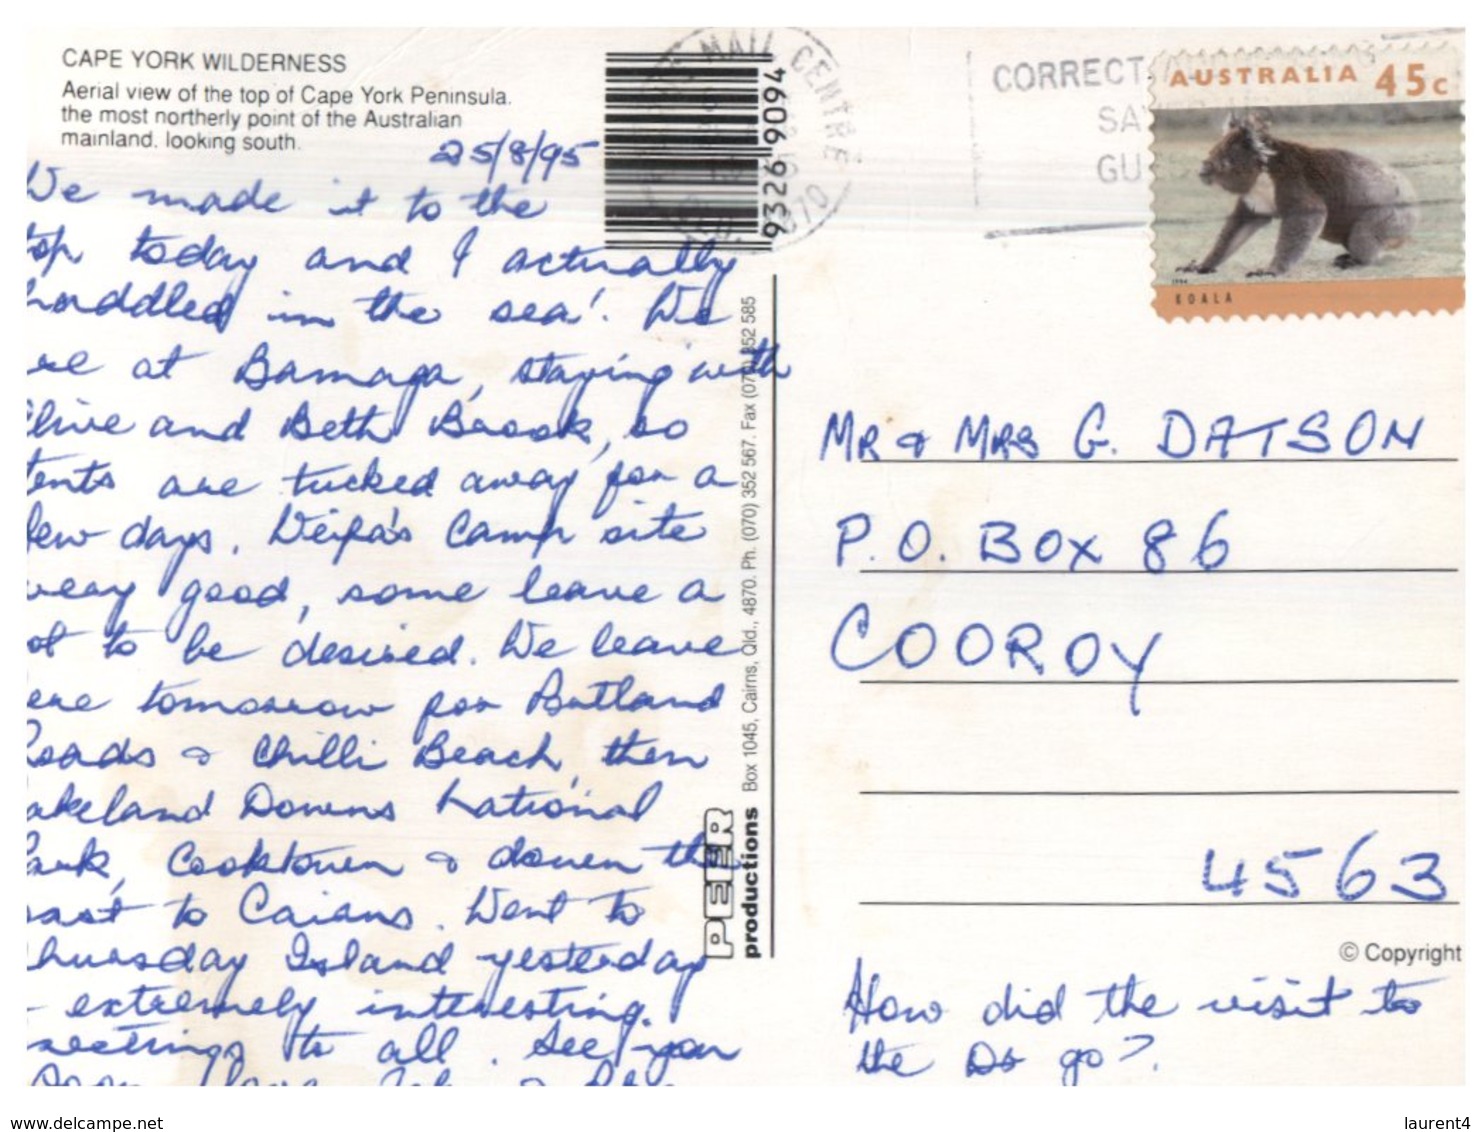 CAPE YORK WILDERNESS
Aerial view of the top of Cape York Peninsula.
the most northerly point of the Australian
mainland, looking south.
25/8/95
We made it to the
top today and I actually
paddled in the sea! We
are at Bamaga, staying with
Clive and Beth Brook, so
tents are tucked away for a
few days. Weipa's Camp site
very good, some leave a
lot to be desired. We leave
here tomorrow for Portland
Roads & Chilli Beach, then
Lakeland Downs National
Park, Cooktown & down the
coast to Cairns. Went to
Thursday Island yesterday
- extremely interesting.
Greetings to all. See you
9326 9094
MAIL CENTRE
4870
CORRECT
SA
GU
AUSTRALIA 45c
1994
KOALA
PEER productions Box 1045, Cairns, Qld., 4870. Ph. (070) 352 567. Fax (070) 352 585
MR & MRS G. DATSON
P.O. BOX 86
COOROY
4563
© Copyright
How did the visit to
the Dr go?
www.delcampe.net
laurent4